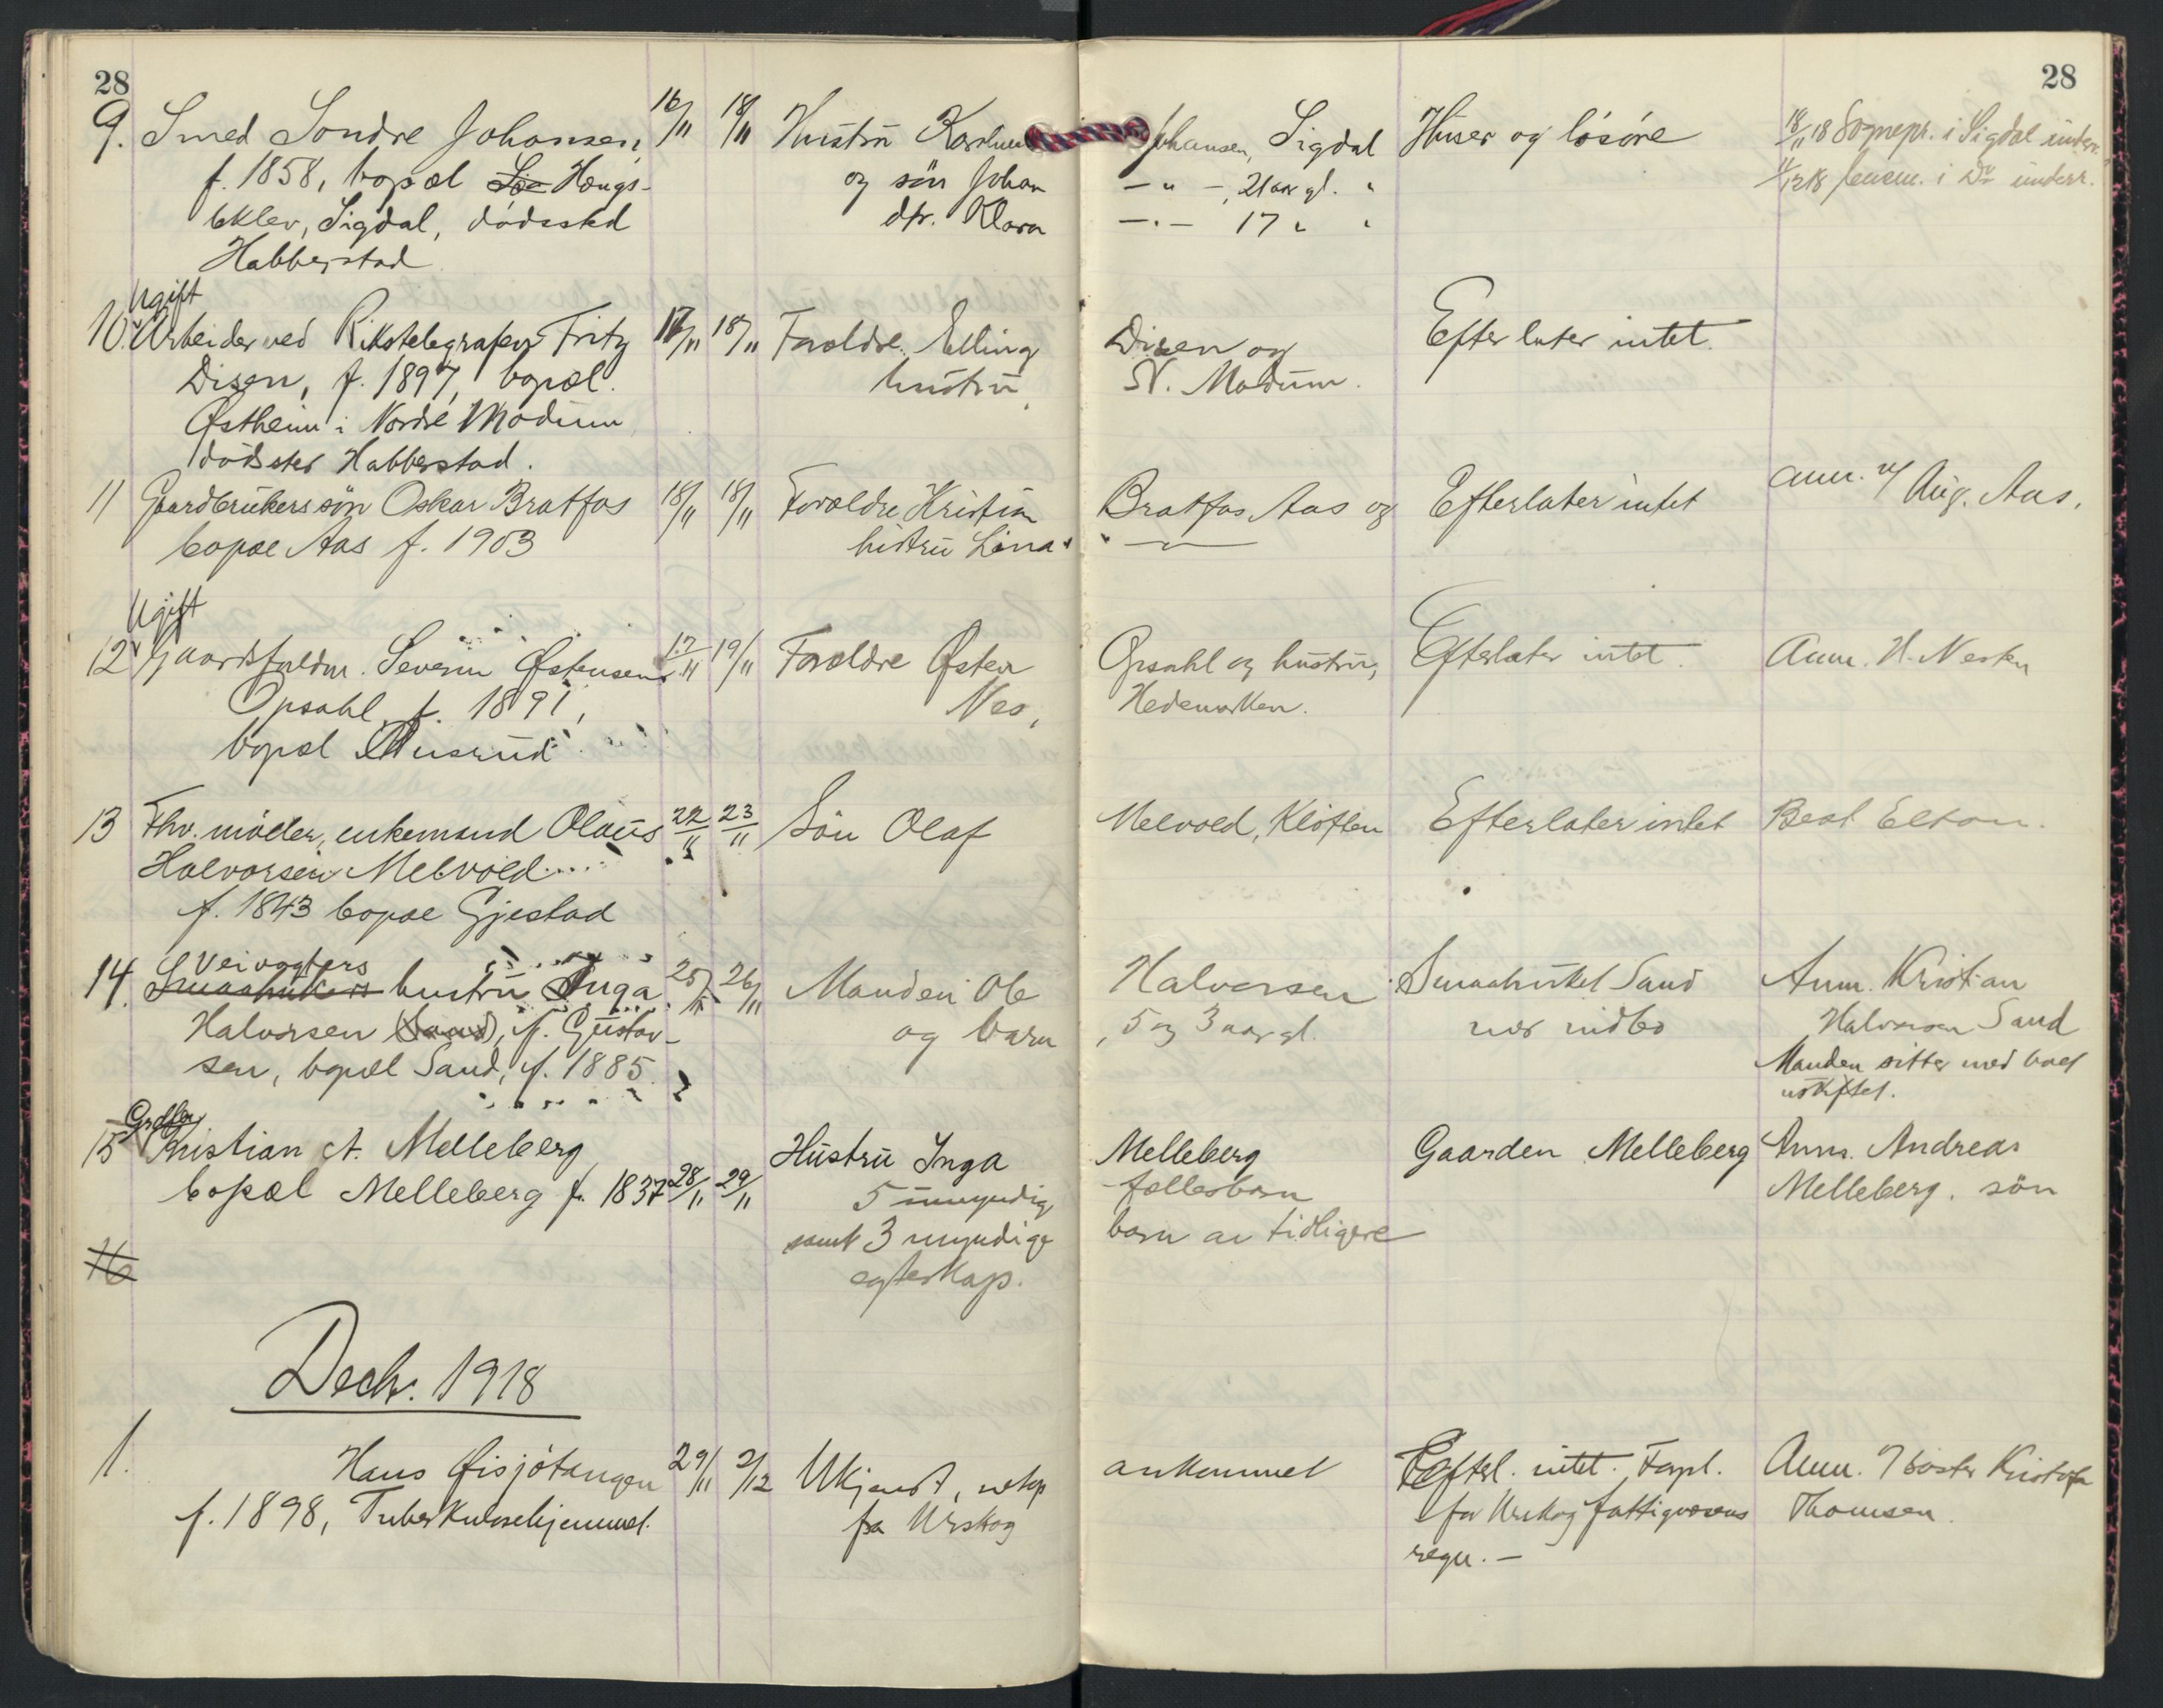 28
28
9. Smed Søndre Johansen, 16/11 18/11 Hustru Johansen, Sigdal Huser og løsøre 18/11 18 Sognepr. i Sigdal underr.
f. 1858, bopæl Hougs- og søn Johan — " — , 21 aar gl. " 18 i Do underr.
eklev, Sigdal, dødssted dtr. Klara — " — 17 " "
Habberstad
Ugift
10. Arbeider ved Rikstelegrafen Fritz 17/11 18/11 Forældre Elling Disen og Efterlater intet.
Disen, f. 1897, bopæl hustru, N. Modum.
Østheim i Nordre Modum
dødssted Habberstad.
11 Gaardbrukerssøn Oskar Bratfos 18/11 18/11 Forældre Kristian Bratfos Aas og Efterlater intet Anm. v/ Aug. Aas.
bopæl Aas f. 1903 hustru Lina " — " —
Ugift
12 Gaardsfuldm. Severin Østensen 17/11 19/11 Forældre Østen Opsahl og hustru, Efterlater intet. Anm. H. Nesten
Opsahl, f. 1891, Nes, Hedemarken.
bopæl
13 Fhv. møller, enkemand Olaus 22/11 23/11 Søn Olaf Melvold, Kløften Efterlater intet Best Elton.
Halvorsen Melvold
f. 1843 bopæl Gjestad
Veivogters
14. Smaabrukers hustru Inga 25/11 26/11 Manden Ole Halvorsen Smaabruket Sand Anm. Kristian
Halvorsen (Sand), f. Gustav- og barn , 5 og 3 aar gl. med indbo Halvorsen Sand
sen, bopæl Sand, f. 1885. Manden sitter med boet
uskiftet.
15 Kristian A. Melleberg Hustru Inga Melleberg Gaarden Melleberg Anm. Andreas
bopæl Melleberg f. 1837 28/11 29/11 5 umyndige fællesbarn Melleberg. søn
samt 3 myndige barn av tidligere
16 egteskap.
Decbr. 1918
1. Hans Øisjøtangen 29/11 2/12 Ukjendt, netop ankommet Efterl. intet. Forpl. Anm. Kristofa
f. 1898, Tuberkulosehjemmet. fra Urskog for Urskog fattigvæsens Thomsen.
regn. —